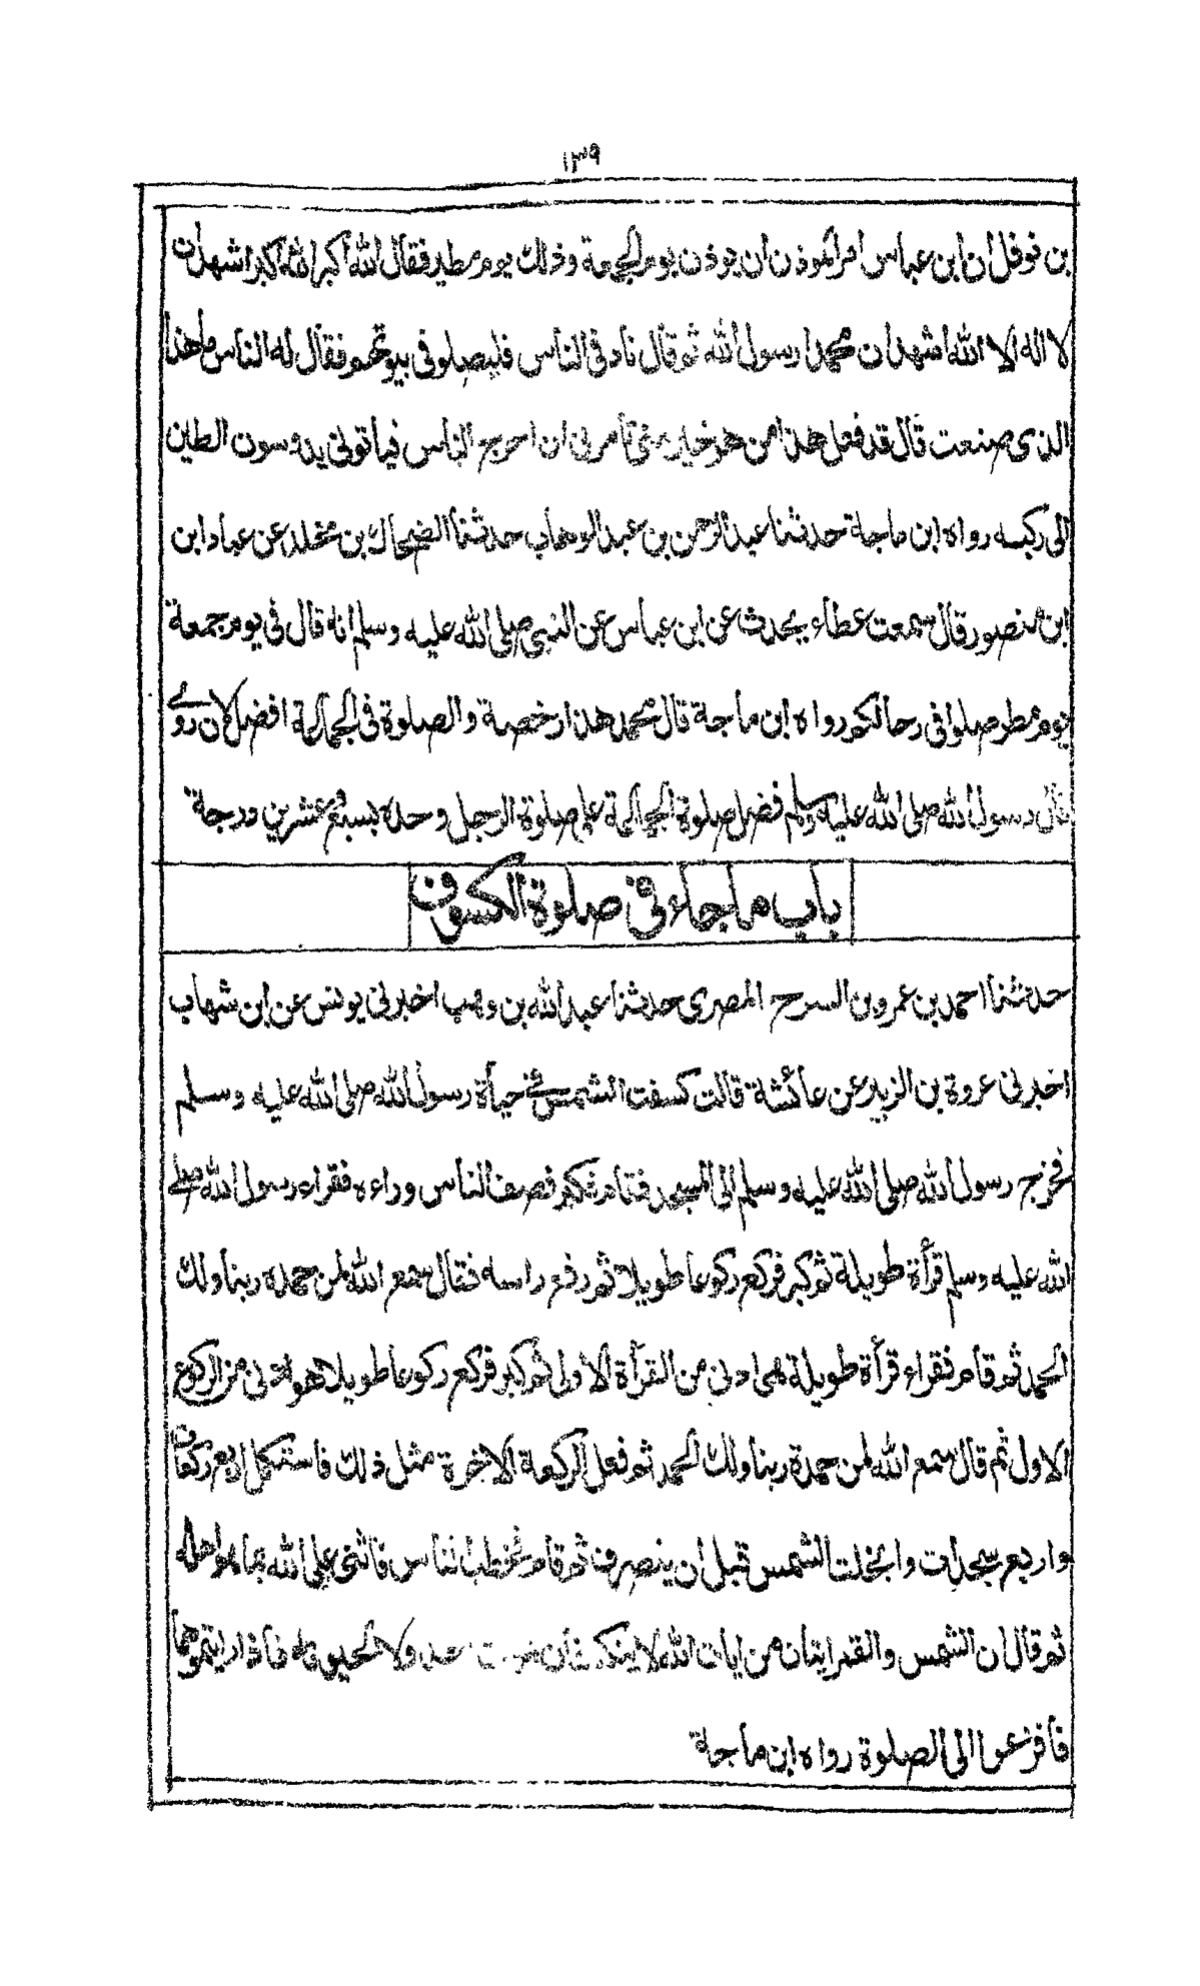 ١٣٩
بن نوفل ان ابن عباس امر الموذن ان يوذن يوم الجمعة وذلك يوم مطير فقال الله اكبر الله اكبر اشهد ان
لا اله الا الله اشهد ان محمدا رسول الله ثم قال ناد في الناس فليصلو في بيوتهم فقال له الناس ما هذا
الذي صنعت قال قد فعل هذا من هو خير مني تأمرني ان اخرج الناس فياتوني يدوسون الطين
الى ركبه رواه ابن ماجة حدثنا عبد الرحمن بن عبد الوهاب حدثنا الضحاك بن مخلد عن عباد ابن
ابن منصور قال سمعت عطاء يحدث عن ابن عباس عن النبي صلى الله عليه وسلم انه قال في يوم جمعة
يوم مطر صلوا في رحالكم رواه ابن ماجة قال محمد هذا رخصة والصلوة في الجماعة افضل لان روے
قال رسول الله صلى الله عليه وسلم فضل صلوة الجماعة على صلوة الرجل وحده بسبع وعشرين درجة
باب ما جاء في صلوة الكسوف
حدثنا احمد بن عمرو بن السرح المصري حدثنا عبد الله بن وهب اخبرني يونس عن ابن شهاب
اخبرني عروة بن الزبير عن عائشة قالت كسفت الشمس في حياة رسول الله صلى الله عليه وسلم
فخرج رسول الله صلى الله عليه وسلم الى المسجد فقام فكبر فصف الناس وراءه فقراء رسول الله صلے
الله عليه وسلم قرأة طويلة ثم كبر فركع ركوعا طويلا ثم رفع راسه فقال سمع الله لمن حمده ربنا ولك
الحمد ثم قام فقراء قرأة طويلة هي ادنى من القرأة الاولى ثم كبر فركع ركوعا طويلا هو ادنى من الركوع
الاول ثم قال سمع الله لمن حمدة ربنا ولك الحمد ثم فعل الركعة الاخرة مثل ذلك فاستكمل اربع ركعات
واربع سجدات وانجلت الشمس قبل ان ينصرف ثم قام فخطب الناس فاثنى على الله بما هو اهله
ثم قال ان الشمس والقمر ايتان من ايات الله لا ينكسفان لموت احد ولا لحيوته فاذا رايتموها
فافزعوا الى الصلوة رواه ابن ماجة